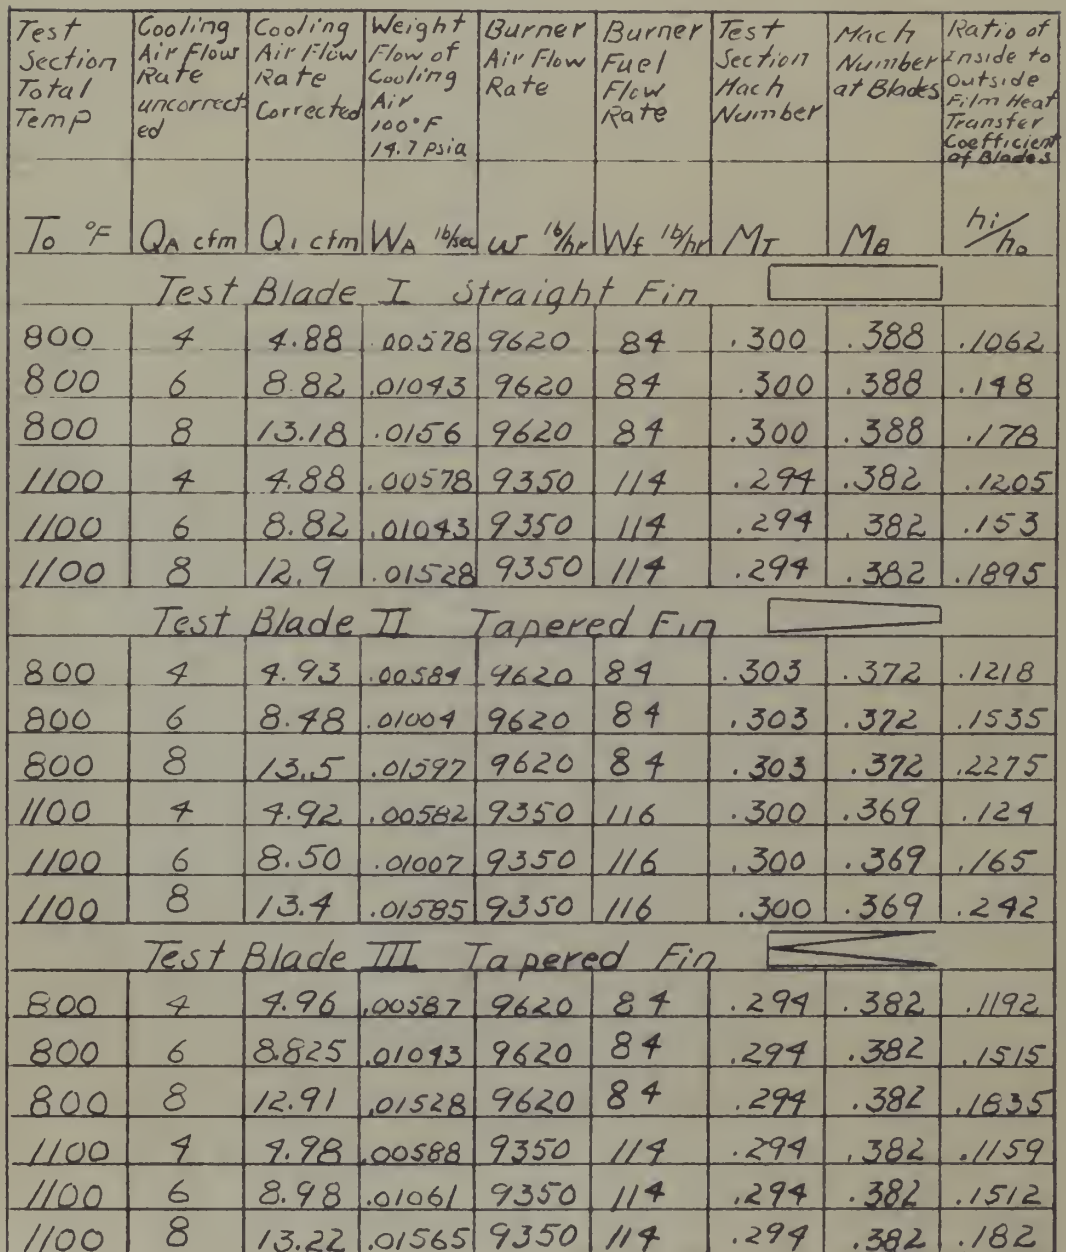 Test Section Total Temp | Cooling Air Flow Rate uncorrected | Cooling Air Flow Rate Corrected | Weight Flow of Cooling Air 100°F 14.7 psia | Burner Air Flow Rate | Burner Fuel Flow Rate | Test Section Mach Number | Mach Number at Blades | Ratio of Inside to Outside Film Heat Transfer Coefficient of Blades
To °F | QA cfm | Q1 cfm | WA lb/sec | w lb/hr | Wf lb/hr | MT | MB | hi/ho
Test Blade I Straight Fin
800 4 4.88 .00578 9620 84 .300 .388 .1062
800 6 8.82 .01043 9620 84 .300 .388 .148
800 8 13.18 .0156 9620 84 .300 .388 .178
1100 4 4.88 .00578 9350 114 .294 .382 .1205
1100 6 8.82 .01043 9350 114 .294 .382 .153
1100 8 12.9 .01528 9350 114 .294 .382 .1895
Test Blade II Tapered Fin
800 4 4.93 .00584 9620 84 .303 .372 .1218
800 6 8.48 .01004 9620 84 .303 .372 .1535
800 8 13.5 .01597 9620 84 .303 .372 .2275
1100 4 4.92 .00582 9350 116 .300 .369 .124
1100 6 8.50 .01007 9350 116 .300 .369 .165
1100 8 13.4 .01585 9350 116 .300 .369 .242
Test Blade III Tapered Fin
800 4 4.96 .00587 9620 84 .294 .382 .1192
800 6 8.825 .01043 9620 84 .294 .382 .1515
800 8 12.91 .01528 9620 84 .294 .382 .1835
1100 4 4.98 .00588 9350 114 .294 .382 .1159
1100 6 8.98 .01061 9350 114 .294 .382 .1512
1100 8 13.22 .01565 9350 114 .294 .382 .182